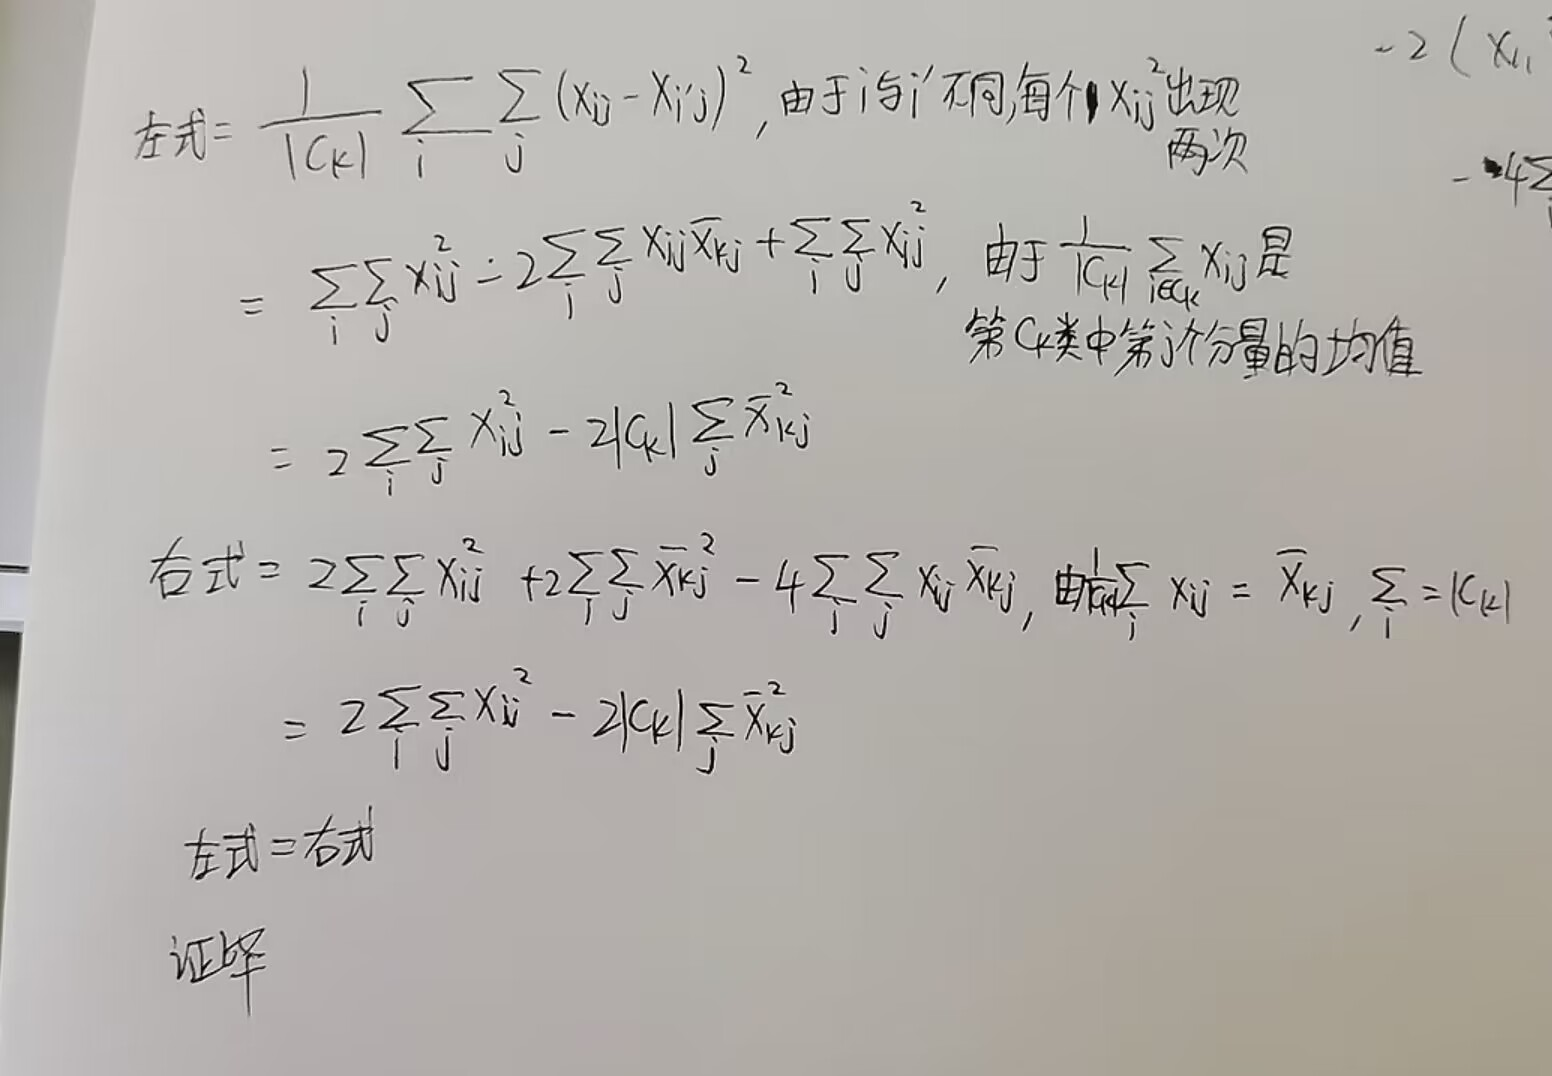 -2(x₁₁
左式 = \frac{1}{|C_k|} \sum_i \sum_j (x_{ij} - x_{i'j})^2, 由于i与i'不同,每个x_{ij}^2出现
两次
-4Σ
= \sum_i \sum_j x_{ij}^2 - 2\sum_i \sum_j x_{ij}\bar{x}_{kj} + \sum_i \sum_j x_{ij}^2, 由于 \frac{1}{|C_k|} \sum_{i∈C_k} x_{ij} 是
第C_k类中第j个分量的均值
= 2\sum_i \sum_j x_{ij}^2 - 2|C_k| \sum_j \bar{x}_{kj}^2
右式 = 2\sum_i \sum_j x_{ij}^2 + 2\sum_i \sum_j \bar{x}_{kj}^2 - 4\sum_i \sum_j x_{ij}\bar{x}_{kj}, 由\frac{1}{|C_k|}\sum_i x_{ij} = \bar{x}_{kj}, \sum_i = |C_k|
= 2\sum_i \sum_j x_{ij}^2 - 2|C_k| \sum_j \bar{x}_{kj}^2
左式=右式
证毕